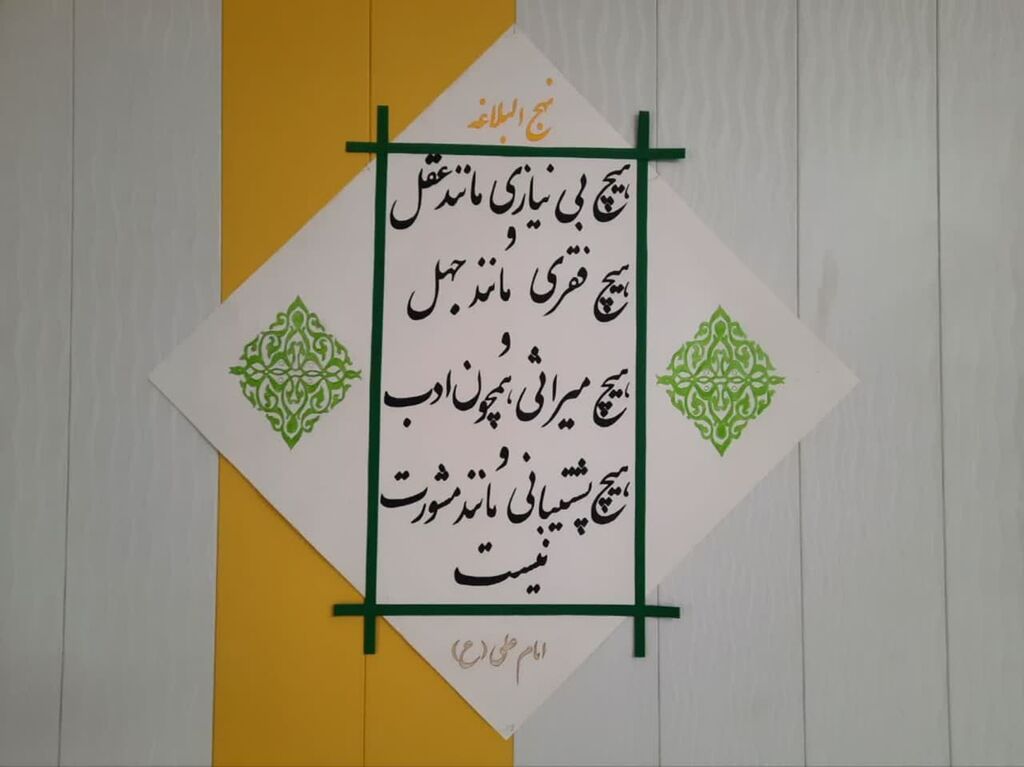 نهج البلاغه
هیچ بی نیازی مانند عقل
و
هیچ فقری مانند جهل
و
هیچ میراثی همچون ادب
و
هیچ پشتیبانی مانند مشورت
نیست
امام علی (ع)